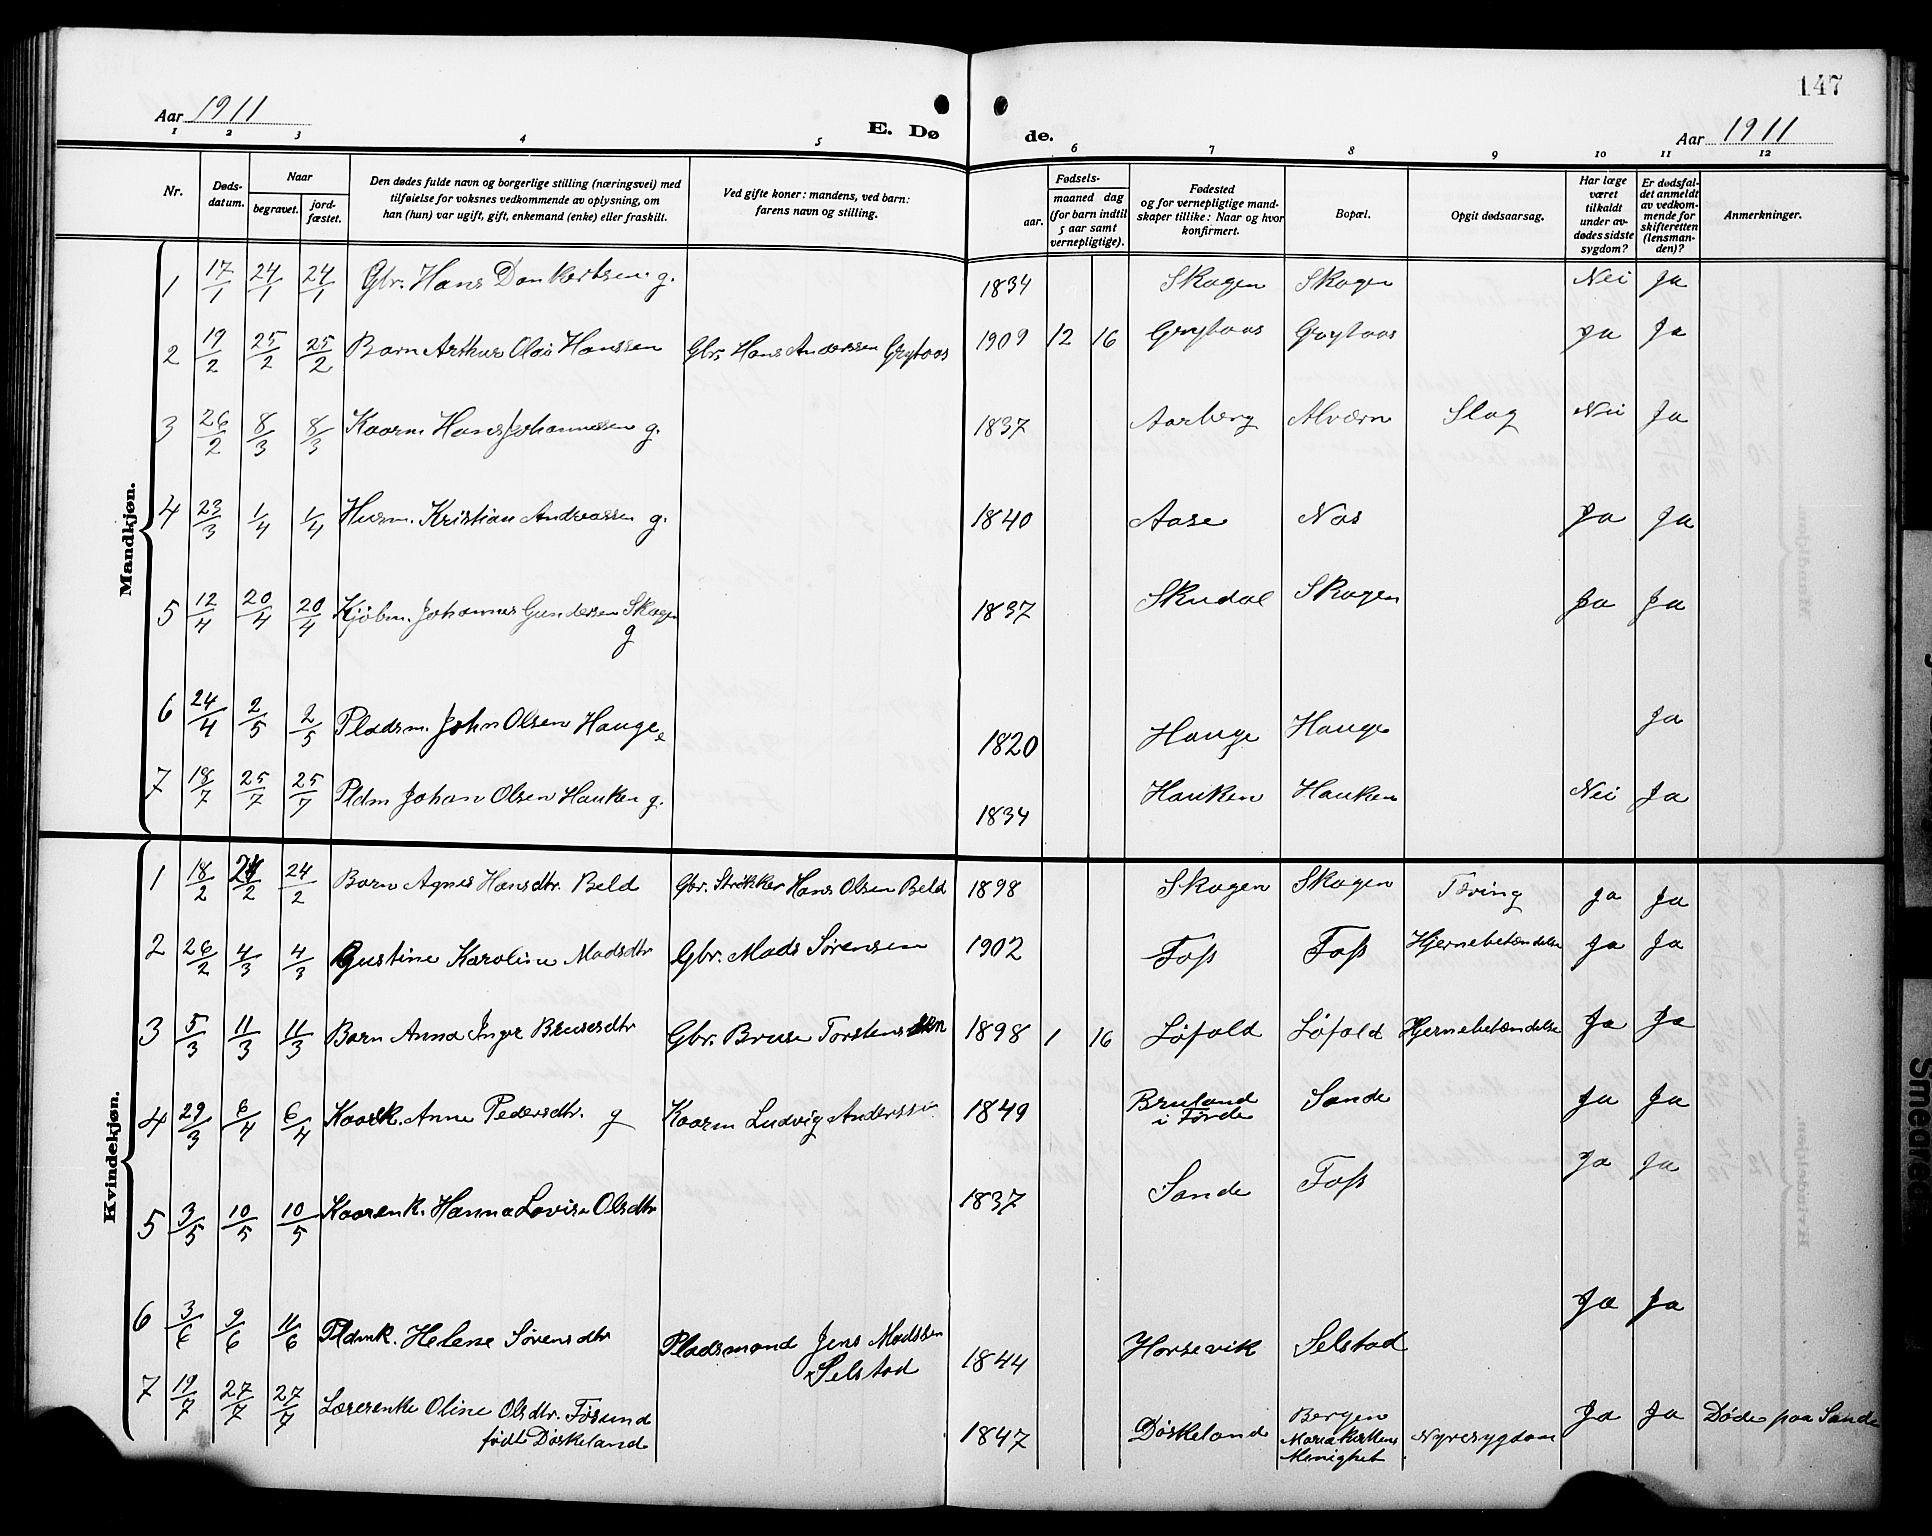 147
Aar 1911
E. Døde.
Aar 1911
1 2 3 4 5 6 7 8 9 10 11 12
Nr.
Døds-
datum.
Naar
begravet.
jord-
fæstet.
Den dødes fulde navn og borgerlige stilling (næringsvei) med
tilføielse for voksnes vedkommende av oplysning, om
han (hun) var ugift, gift, enkemand (enke) eller fraskilt.
Ved gifte koner: mandens, ved barn:
farens navn og stilling.
Fødsels-
aar.
maaned dag
(for barn indtil
5 aar samt
vernepligtige).
Fødested
og for vernepligtige mand-
skaper tillike: Naar og hvor
konfirmert.
Bopæl.
Opgit dødsaarsag.
Har læge
været
tilkaldt
under av-
dødes sidste
sygdom?
Er dødsfal-
det anmeldt
av vedkom-
mende for
skifteretten
(lensman-
den)?
Anmerkninger.
Mandkjøn.
1 17/1 24/1 24/1 Gbr. Hans Dankertsen g. 1834 Skagen Skagen Nei Ja
2 19/2 25/2 25/2 Barn Arthur Olai Hanssen Gbr. Hans Anderssen Grytaas 1909 12 16 Grytaas Grytaas Ja Ja
3 26/2 8/3 8/3 Kaarm. Hans Johannessen g. 1837 Aarberg Alværn Slag Nei Ja
4 23/3 1/4 1/4 Husm. Kristian Andreassen g. 1840 Aase Nas Ja Ja
5 12/4 20/4 20/4 Kjøbm. Johannes Gunderssen Skagen
g 1837 Skudal Skagen Ja Ja
6 24/4 2/5 2/5 Pladsm. John Olsen Hauge e 1820 Hauge Hauge Ja
7 18/7 25/7 25/7 Pldm Johan Olsen Hauken g. 1834 Hauken Hauken Nei Ja
Kvindekjøn.
1 18/2 24/2 24/2 Barn Agnes Hansdtr. Beld Gbr. Strikker Hans Olsen Beld 1898 Skagen Skagen Tæring Ja Ja
2 26/2 4/3 4/3 Gustine Karoline Madsdtr Gbr. Mads Sørensen 1902 Foss Foss Hjernebetændelse Ja Ja
3 5/3 11/3 11/3 Barn Anna Inger Brusesdtr Gbr. Bruse Torstensen 1898 1 16 Løfald Løfald Hjernebetændelse Ja Ja
4 29/3 6/4 6/4 Kaark. Anne Pedersdtr. g Kaarm Ludvig Anderssen 1849 Bruland
i Førde Sande Ja Ja
5 3/5 10/5 10/5 Kaarenk. Hanna Lovise Olsdtr 1837 Sande Foss Ja Ja
6 3/6 9/6 11/6 Pldmk. Helene Sørensdtr Pladsmand Jens Madssen
Selstad 1844 Horsevik Selstad Ja Ja
7 19/7 27/7 27/7 Lærerenke Oline Olsdtr. Førsund
født Døskeland 1847 Døskeland Bergen
Mariakirkens
Menighet Nyresygdom Ja Ja Døde paa Sande
Smearco